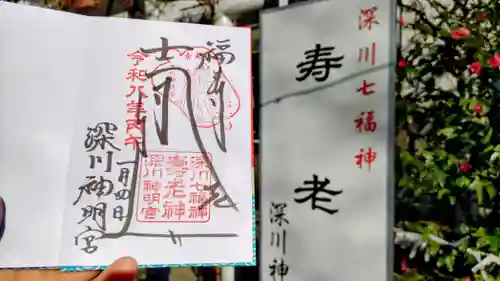 深川七福神
寿老
深川神
福寿
深川七福神
壽老神
深川神明宮
令和八年丙午
一月四日
深川神明宮